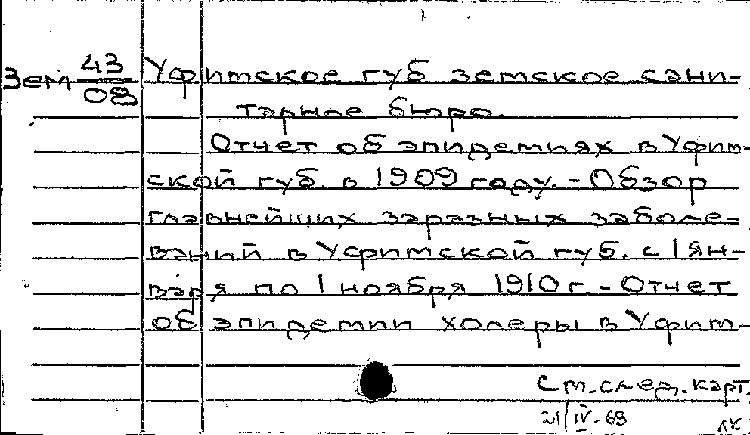 Зем 43/08 Уфимское губ земское сани-
тарное бюро.
Отчет об эпидемиях в Уфим-
ской губ. в 1909 году. - Обзор
главнейших заразных заболе-
ваний в Уфимской губ. с 1 ян-
варя по 1 ноября 1910 г. - Отчет
об эпидемии холеры в Уфим-
См. след. карт.
21/IV-69